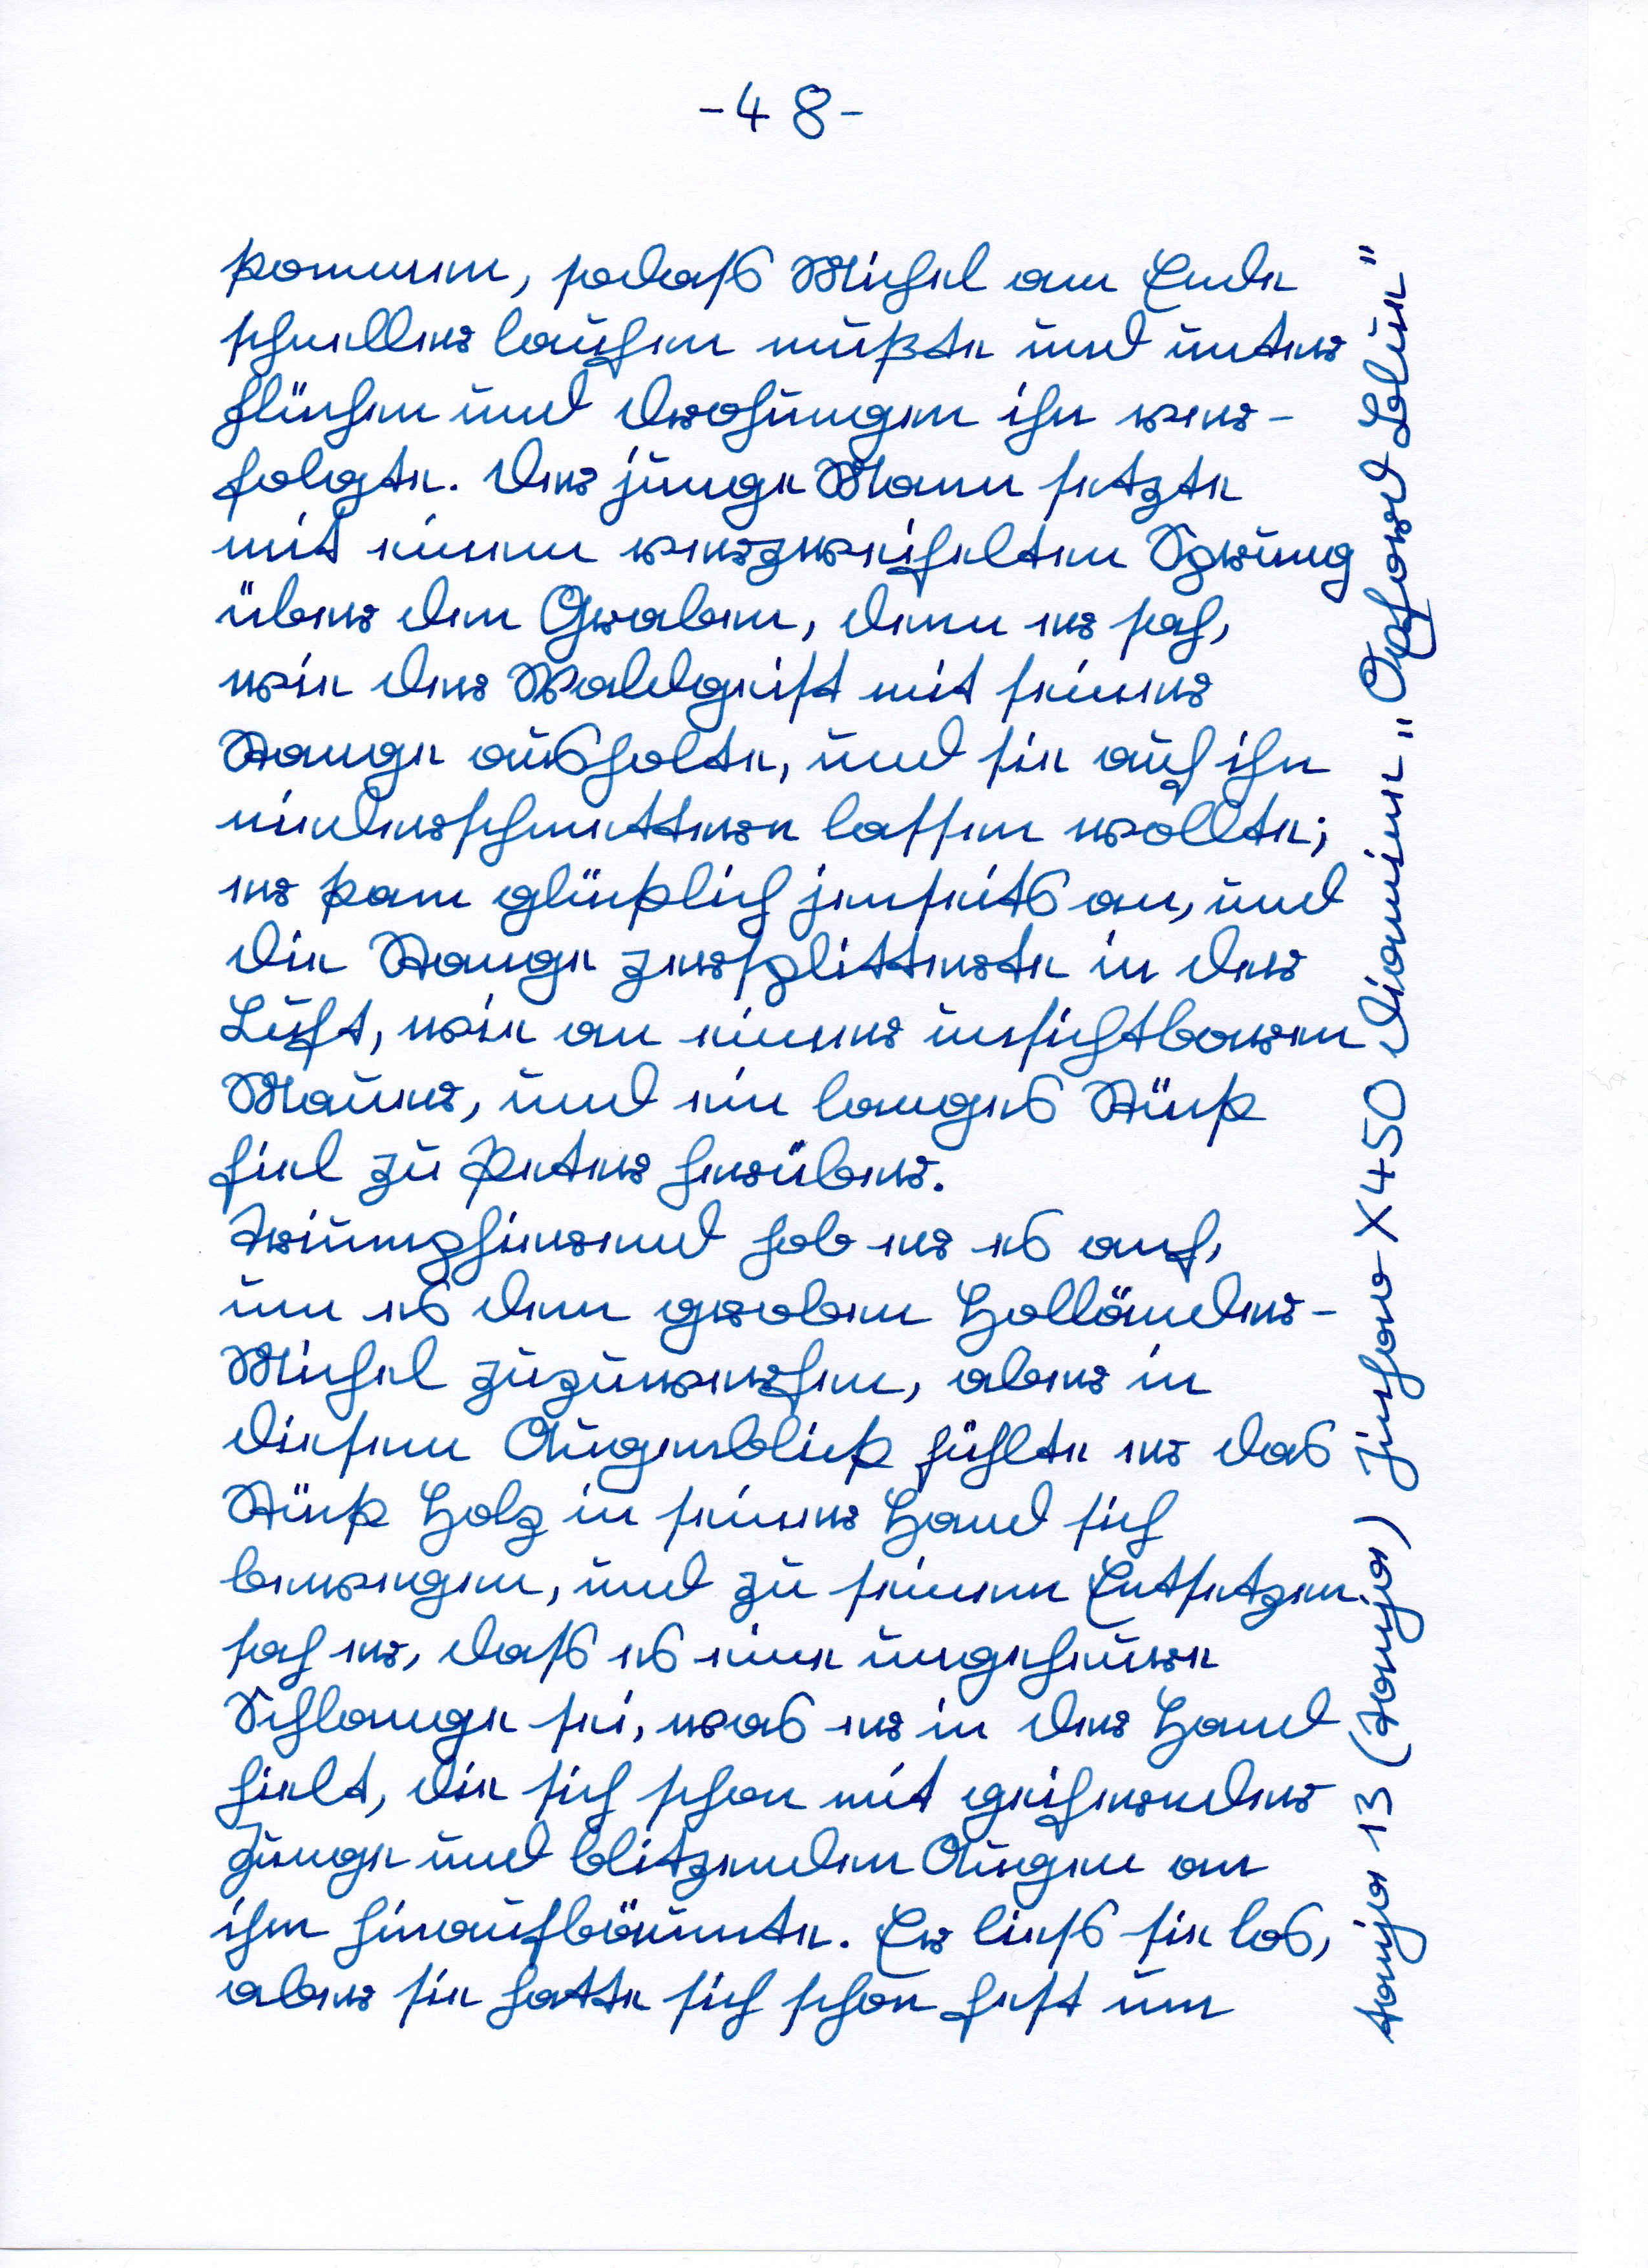 -48-
kommen, sodass Michel am Ende
schneller laufen mußte und unter
flüchen und drohungen ihn ver-
folgte. Der junge Mann setzte
mit einem verzweifelten Sprung
über den Graben, denn er sah,
wie der Waldgeist mit seiner
Stange ausholte, und sie auf ihn
niederschmettern lassen wollte;
er kam glücklich jenseits an, und
die Stange zersplitterte in der
Luft, wie an einer unsichtbaren
Mauer, und ein langes Stück
fiel zu Peter herüber.
Triumphierend hob er es auf,
um es dem groben Holländer-
Michel zuzuwerfen, aber in
diesem Augenblick fühlte er das
Stück Holz in seiner Hand sich
bewegen, und zu seinem Entsetzen
sah er, dass es eine ungeheure
Schlange sei, was er in der Hand
hielt, die sich schon mit geifernder
Zunge und blitzenden Augen an
ihm hinaufbäumte. Er liess sie los,
aber sie hatte sich schon fest um
Tanja 13 (Tanja) jinhao X450 Diamine "Oxford Blue"